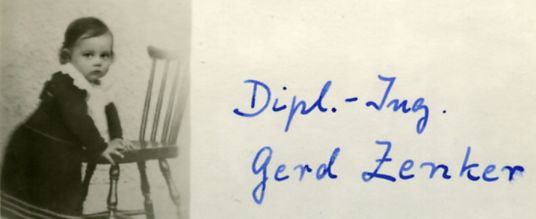 Dipl.-Ing.
Gerd Zenker